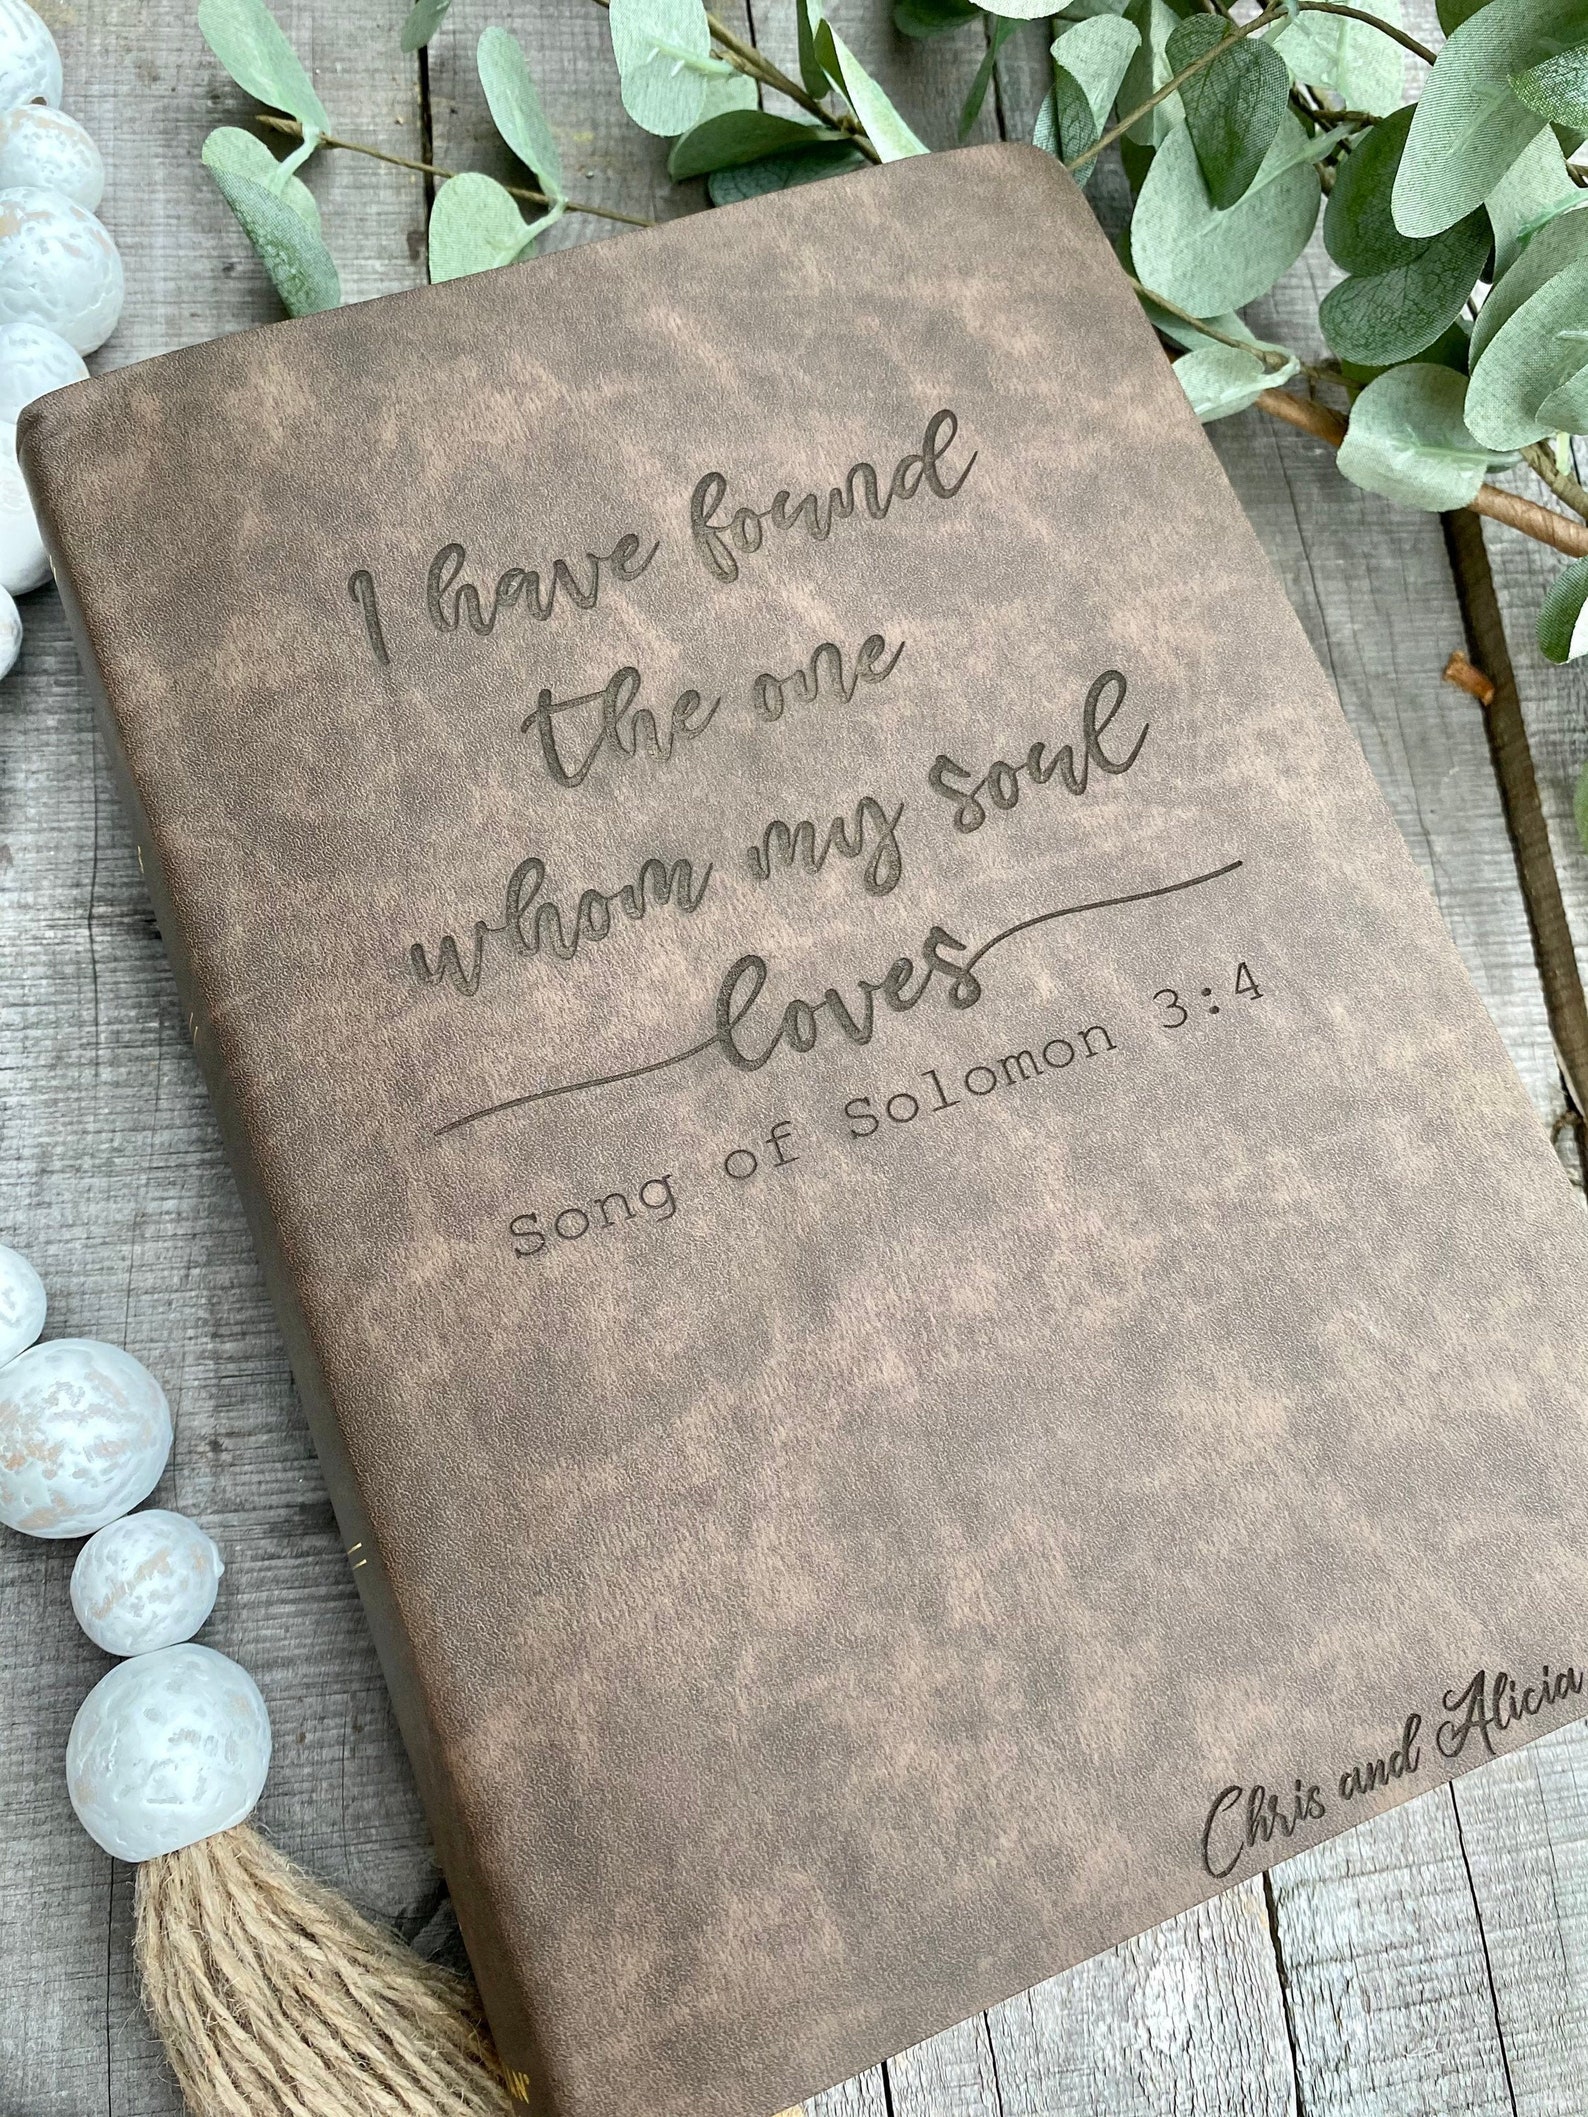 I have found
the one
whom my soul
loves
Song of Solomon 3:4
Chris and Alicia